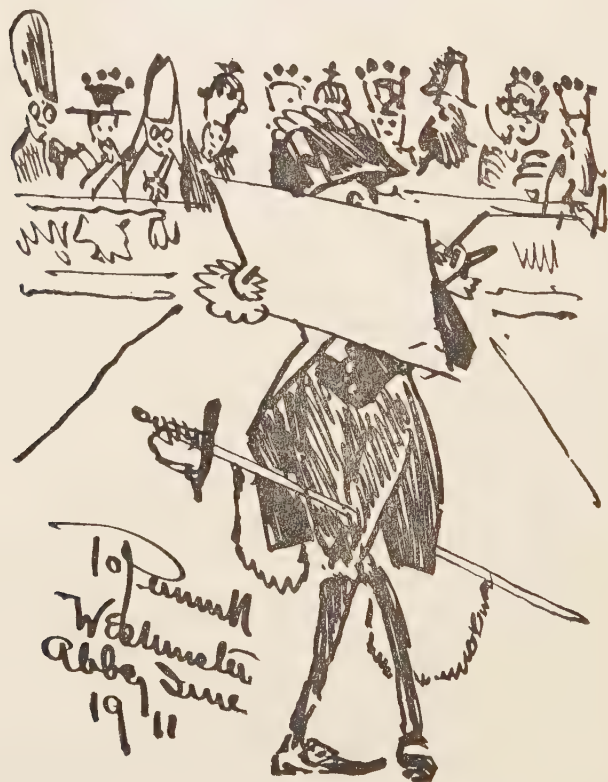 To Pennell
Westminster
Abbey June
19 11